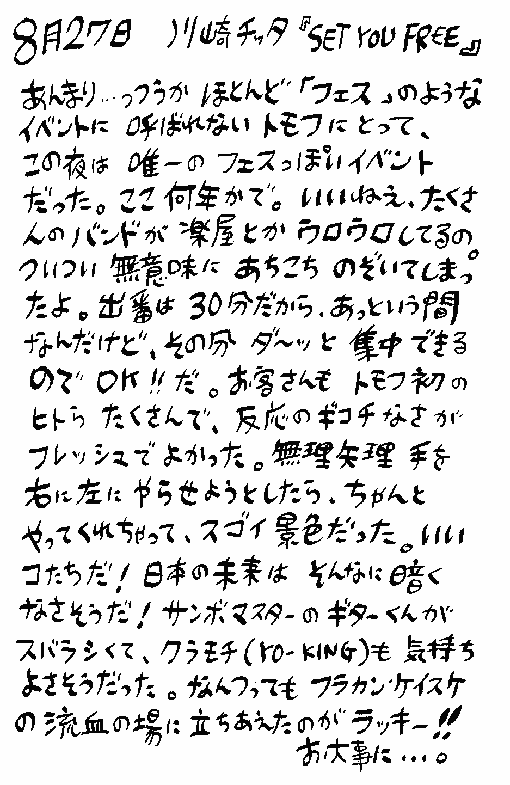 8月27日 川崎チッタ『SET YOU FREE』
あんまり…っつうか ほとんど「フェス」のような
イベントに 呼ばれない トモフにとって、
この夜は 唯一の フェスっぽいイベント
だった。ここ何年かで。いいねえ、たくさ
んのバンドが 楽屋とか ウロウロしてるの。
ついつい 無意味に あちこち のぞいてしまっ
たよ。出番は 30分だから、あっという間
なんだけど、その分 ダ〜ッと 集中できる
ので OK!!だ。お客さんも トモフ初の
ヒトら たくさんで、反応のギコチなさが
フレッシュでよかった。無理矢理 手を
右に左に やらせようとしたら、ちゃんと
やってくれちゃって、スゴイ景色だった。いい
コたちだ!日本の未来は そんなに暗く
なさそうだ!サンボマスターの ギターくんが
スバラシくて、クラモチ(YO-KING)も 気持ち
よさそうだった。なんつっても フラカン・ケイスケ
の 流血の場に立ちあえたのが ラッキー!!
お大事に…。